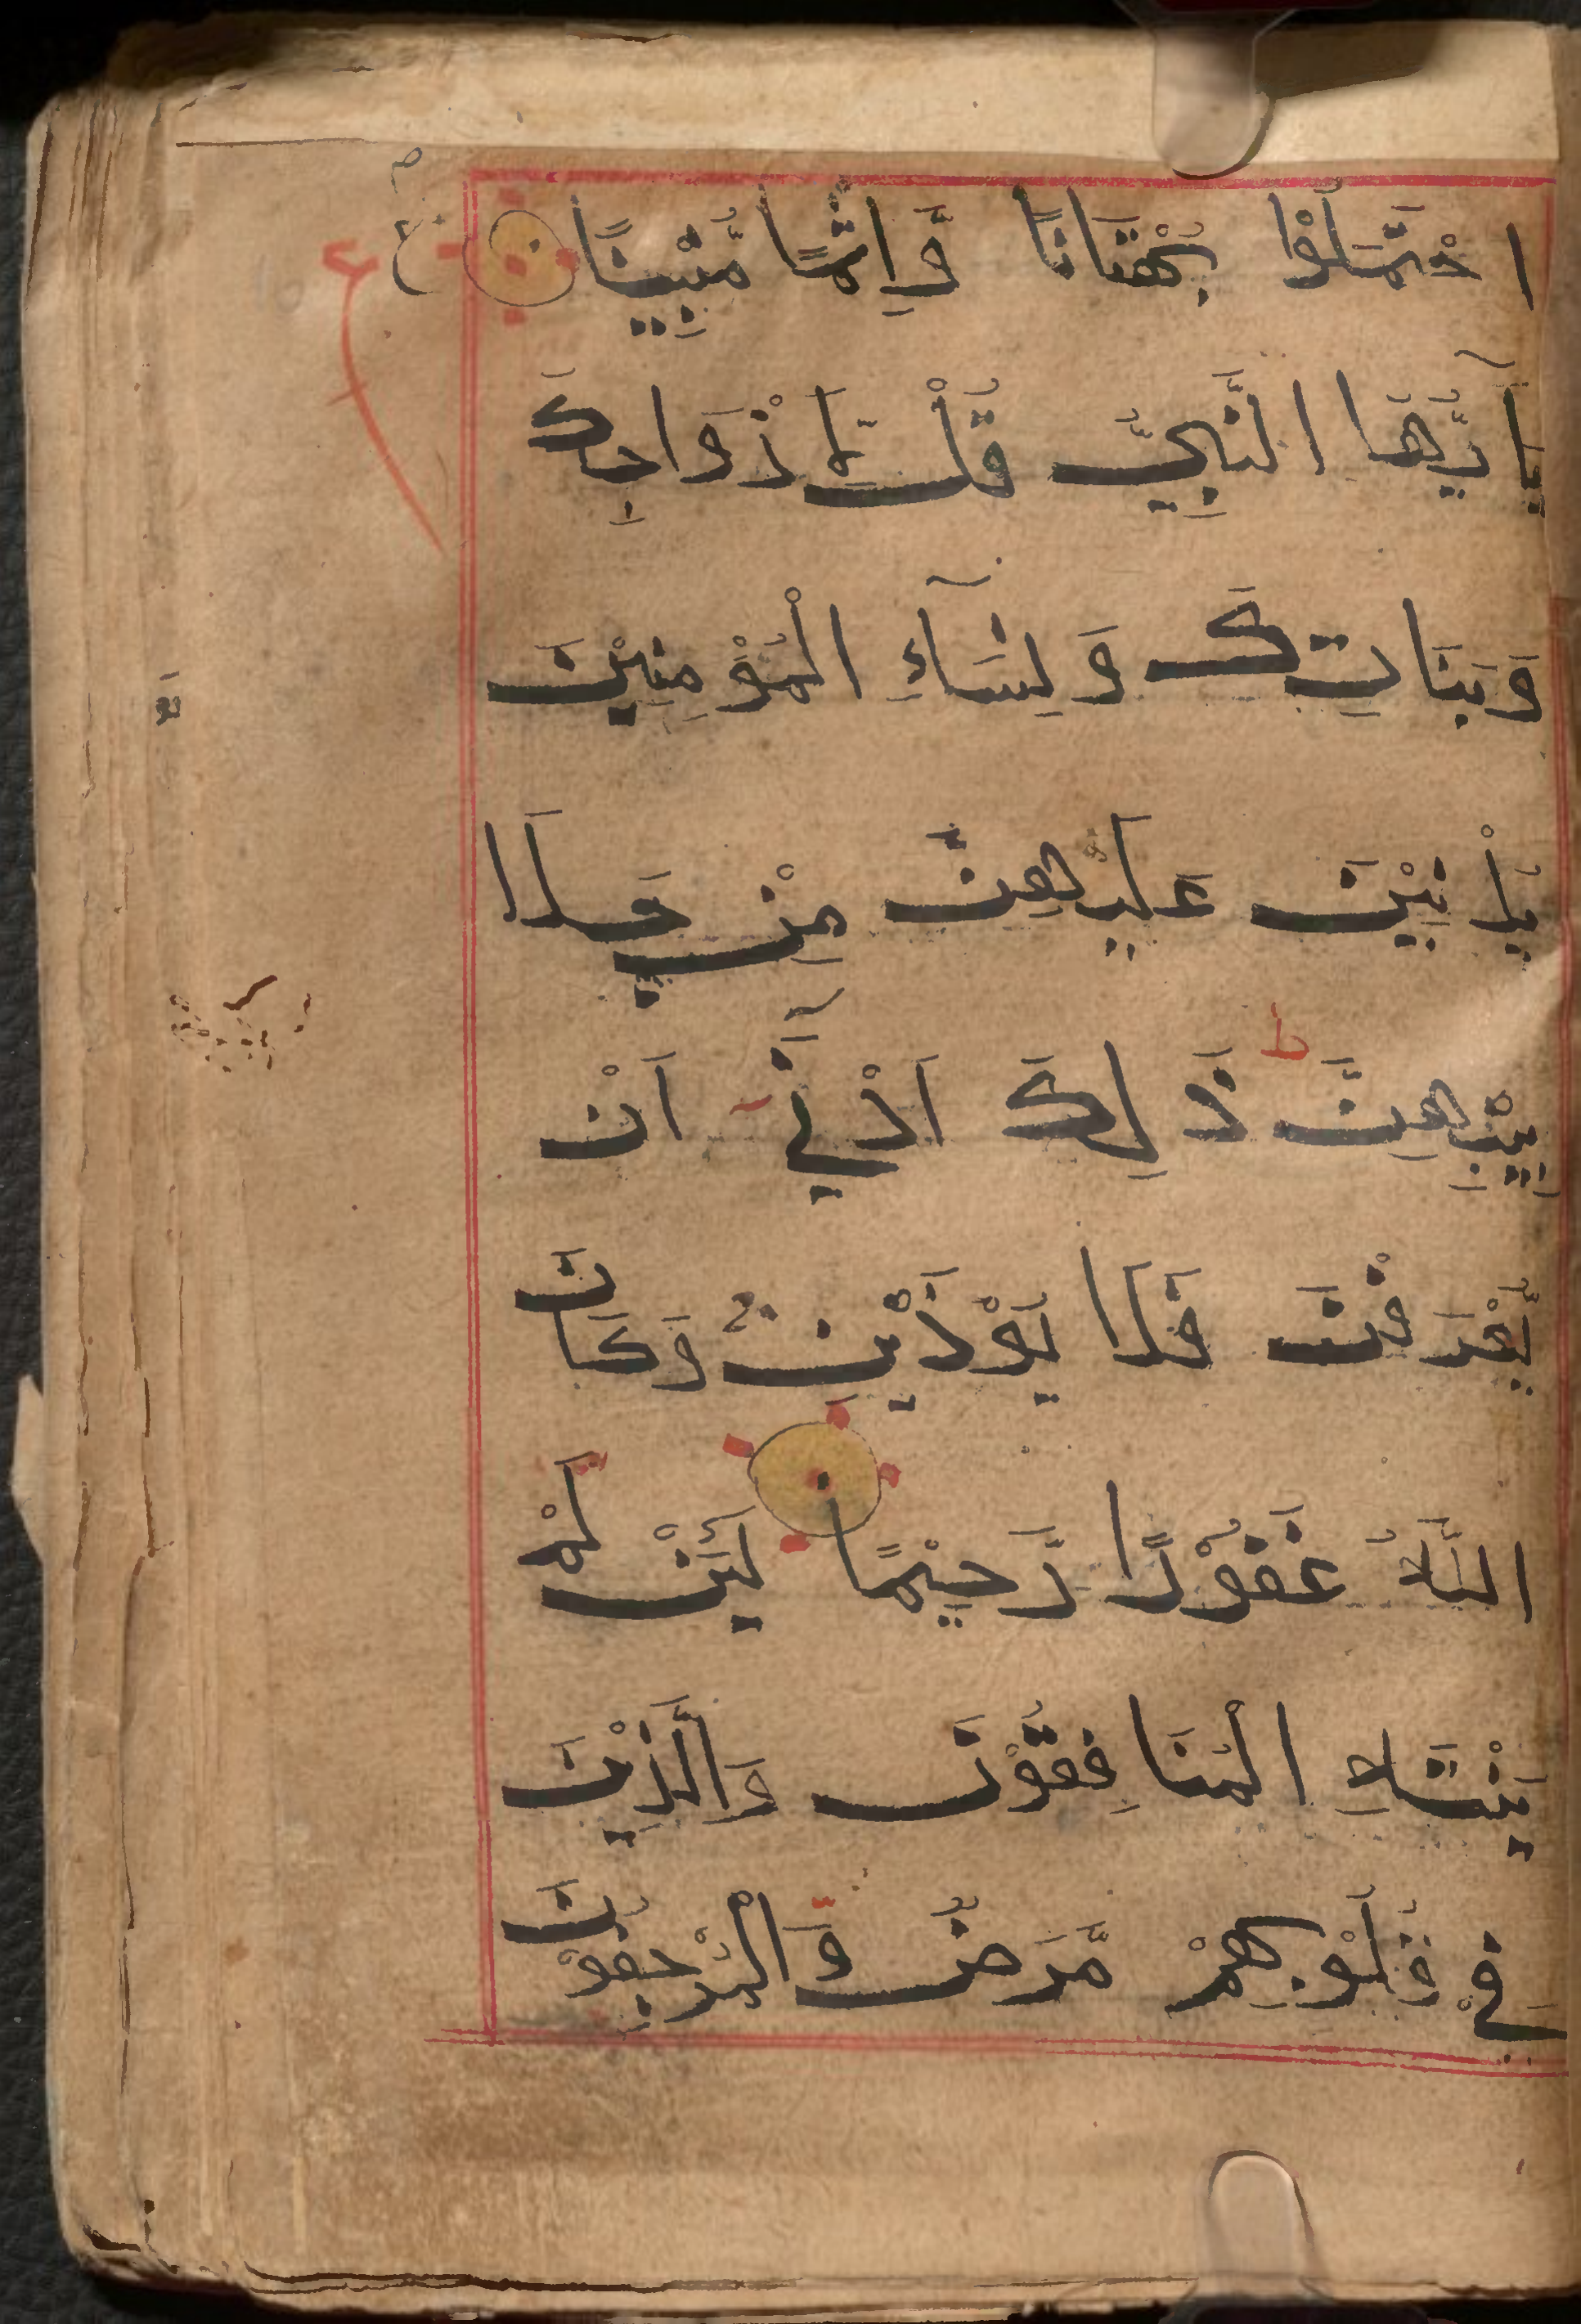 احْتَمَلُوْا بُهْتَانًا وَّاِثْمًا مُّبِيْنًا ع
يٰۤاَيُّهَا النَّبِيُّ قُلْ لِّاَزْوَاجِكَ
وَبَنَاتِكَ وَنِسَآءِ الْمُؤْمِنِيْنَ
يُدْنِيْنَ عَلَيْهِنَّ مِنْ جَلَا
بِيْبِهِنَّ ط ذٰلِكَ اَدْنٰۤى اَنْ
يُّعْرَفْنَ فَلَا يُؤْذَيْنَ وَكَانَ
اللّٰهُ غَفُوْرًا رَّحِيْمًا لَئِنْ لَّمْ
يَنْتَهِ الْمُنَافِقُوْنَ وَالَّذِيْنَ
فِيْ قُلُوْبِهِمْ مَّرَضٌ وَّالْمُرْجِفُوْنَ